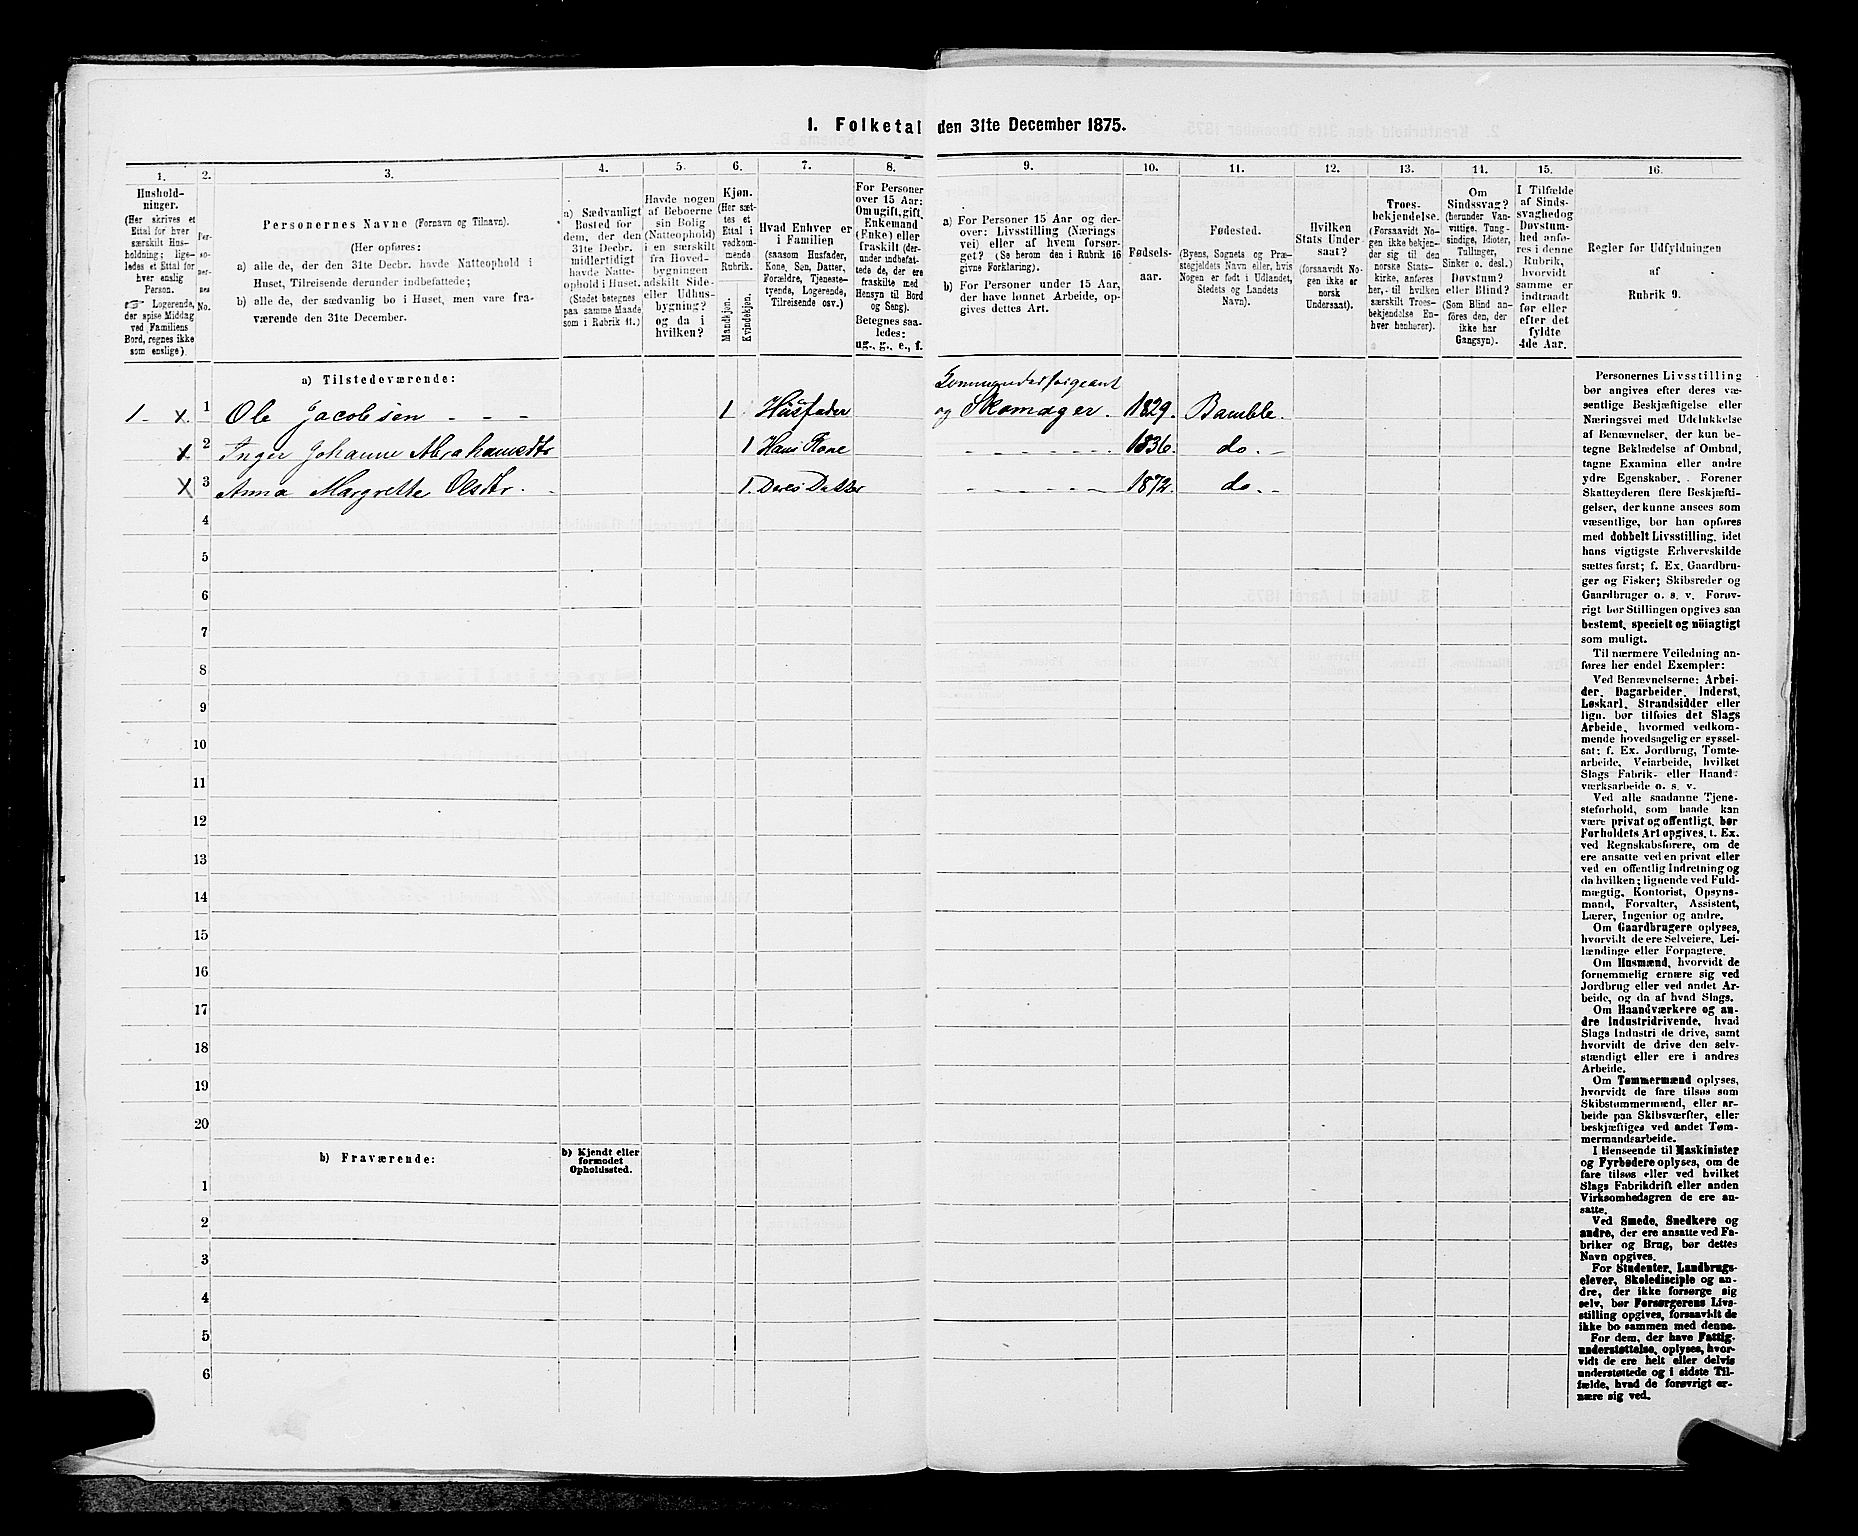 1. Folketal den 31te December 1875.
1.
Hushold-
ninger.
(Her skrives et
Ettal for hver
særskilt Hus-
holdning; lige-
ledes et Ettal for
hver enslig
Person.
☞ Logerende,
der spise Middag
ved Familiens
Bord, regnes ikke
som enslige).
2.
Per-
so-
ner-
nes
No.
3.
Personernes Navne (Fornavn og Tilnavn).
(Her opføres:
a) alle de, der den 31te Decbr. havde Natteophold i
Huset, Tilreisende derunder indbefattede;
b) alle de, der sædvanlig bo i Huset, men vare fra-
værende den 31te December.
4.
a) Sædvanligt
Bosted for
dem, der den
31te Decbr.
midlertidigt
havde Natte-
ophold i Huset.
(Stedet betegnes
paa samme Maade
som i Rubrik 11.)
5.
Havde nogen
af Beboerne
sin Bolig
(Natteophold)
i en særskilt
fra Hoved-
bygningen
adskilt Side-
eller Udhus-
bygning?
og da i
hvilken?
6.
Kjøn.
(Her sæt-
tes et
Ettal i
vedkom-
mende
Rubrik.
Mandkjøn.
Kvindekjøn.
7.
Hvad Enhver er
i Familien
(saasom Husfader,
Kone, Søn, Datter,
Forældre, Tjeneste-
tyende, Logerende,
Tilreisende osv.)
8.
For Personer
over 15 Aar:
Om ugift, gift,
Enkemand
(Enke) eller
fraskilt (der-
under indbefat-
tede de, der ere
fraskilte med
Hensyn til Bord
og Seng).
Betegnes saa-
ledes:
ug., g., e., f.
9.
a) For Personer 15 Aar og der-
over: Livsstilling (Nærings
vei) eller af hvem forsør-
get? (Se herom den i Rubrik 16
givne Forklaring).
b) For Personer under 15 Aar,
der have lønnet Arbeide, op-
gives dettes Art.
10.
Fødsels-
aar.
11.
Fødested.
(Byens, Sognets og Præ-
stegjeldets Navn eller, hvis
Nogen er født i Udlandet,
Stedets og Landets
Navn).
12.
Hvilken
Stats Under-
saat?
(forsaavidt No-
gen ikke er
norsk
Undersaat).
13.
Troes-
bekjendelse.
(Forsaavidt No-
gen ikke bekjen-
der sig til den
norske Stats-
kirke, anføres
her, til hvilken
særskilt Troes-
bekjendelse En-
hver henhører).
14.
Om
Sindssvag?
(herunder Van-
vittige, Tung-
sindige, Idioter,
Tullinger,
Sinker o. desl.)
Døvstum?
eller Blind?
(Som Blind an-
føres den, der
ikke har
Gangsyn).
15.
I Tilfælde
af Sinds-
svaghed og
Døvstum-
hed anfø-
res i denne
Rubrik,
hvorvidt
samme er
indtraadt
før eller
efter det
fyldte
4de Aar.
16.
Regler for Udfyldningen
af
Rubrik 9.
a) Tilstedeværende:
1 x 1 Ole Jacobsen 1 Husfader og Skomager. 1829. Bamble.
x 2 Inger Johanne Abrahamsdtr 1 Hans Kone 1836. do.
x 3 Anna Margrethe Olsdtr. 1. Deres Datter 1872. do.
4
5
6
7
8
9
10
11
12
13
14
15
16
17
18
19
20
b) Fraværende:
b) Kjendt eller
formodet
Opholdssted.
1
2
3
4
5
6
Personernes Livsstilling
bør angives efter deres væ-
sentlige Beskjæftigelse eller
Næringsvei med Udelukkelse
af Benævnelser, der kun be-
tegne Beklædelse af Ombud,
tagne Examina eller andre
ydre Egenskaber. Forener
Skatteyderen flere Beskjæfti-
gelser, der kunne ansees som
væsentlige, bør han opføres
med dobbelt Livsstilling, idet
hans vigtigste Erhvervskilde
sættes først; f. Ex. Gaardbru-
ger og Fisker; Skibsreder og
Gaardbruger o. s. v. Forøv-
rigt bør Stillingen opgives saa
bestemt, specielt og nöiagtigt
som muligt.
Til nærmere Veiledning an-
føres her endel Exempler:
Ved Benævnelserne: Arbei-
der, Dagarbeider, Inderst,
Løskarl, Strandsidder eller
lign. bør tilføies det Slags
Arbeide, hvormed vedkom-
mende hovedsagelig er syssel-
sat; f. Ex. Jordbrug, Tomte-
arbeide, Veiarbeide, hvilket
Slags Fabrik- eller Haand-
værksarbeide o. s. v.
Ved alle saadanne Tjene-
steforhold, som baade kan
være privat og offentligt, bør
Forholdets Art opgives, t. Ex.
ved Regnskabsførere, om de
ere ansatte ved en privat eller
ved en offentlig Indretning og
da hvilken; lignende ved Fuld-
mægtig, Kontorist, Opsyns-
mand, Forvalter, Assistent,
Lærer, Ingeniør og andre.
Om Gaardbrugere oplyses,
hvorvidt de ere Selveiere, Lei-
lændinge eller Forpagtere.
Om Husmænd, hvorvidt de
fornemmelig ernære sig ved
Jordbrug eller ved andet Ar-
beide, og da af hvad Slags.
Om Haandværkere og an-
dre Industridrivende, hvad
Slags Industri de drive, samt
hvorvidt de drive den selv-
stændigt eller ere i andres
Arbeide.
Om Tømmermænd oplyses,
hvorvidt de fare tilsøs som
Skibstømmermænd, eller ar-
beide paa Skibsværfter, eller
beskjæftiges ved andet Tøm-
mermandsarbeide.
I Henseende til Maskinister
og Fyrbødere oplyses, om de
fare tilsøs eller ved hvilket
Slags Fabrikdrift eller anden
Virksomhedsgren de ere an-
satte.
Ved Smede, Snedkere og
andre, der ere ansatte ved Fa-
briker og Brug, bør dettes
Navn opgives.
For Studenter, Landbrugs-
elever, Skoledisciple og an-
dre, der ikke forsørge sig
selv, bør Forsørgerens Livs-
stilling opgives, forsaavidt de
ikke bo sammen med denne.
For dem, der have Fattig-
understøttelse, oplyses, hvor-
vidt de ere helt eller delvis
understøttede og i sidste Til-
fælde, hvad de forøvrigt er-
nære sig ved.